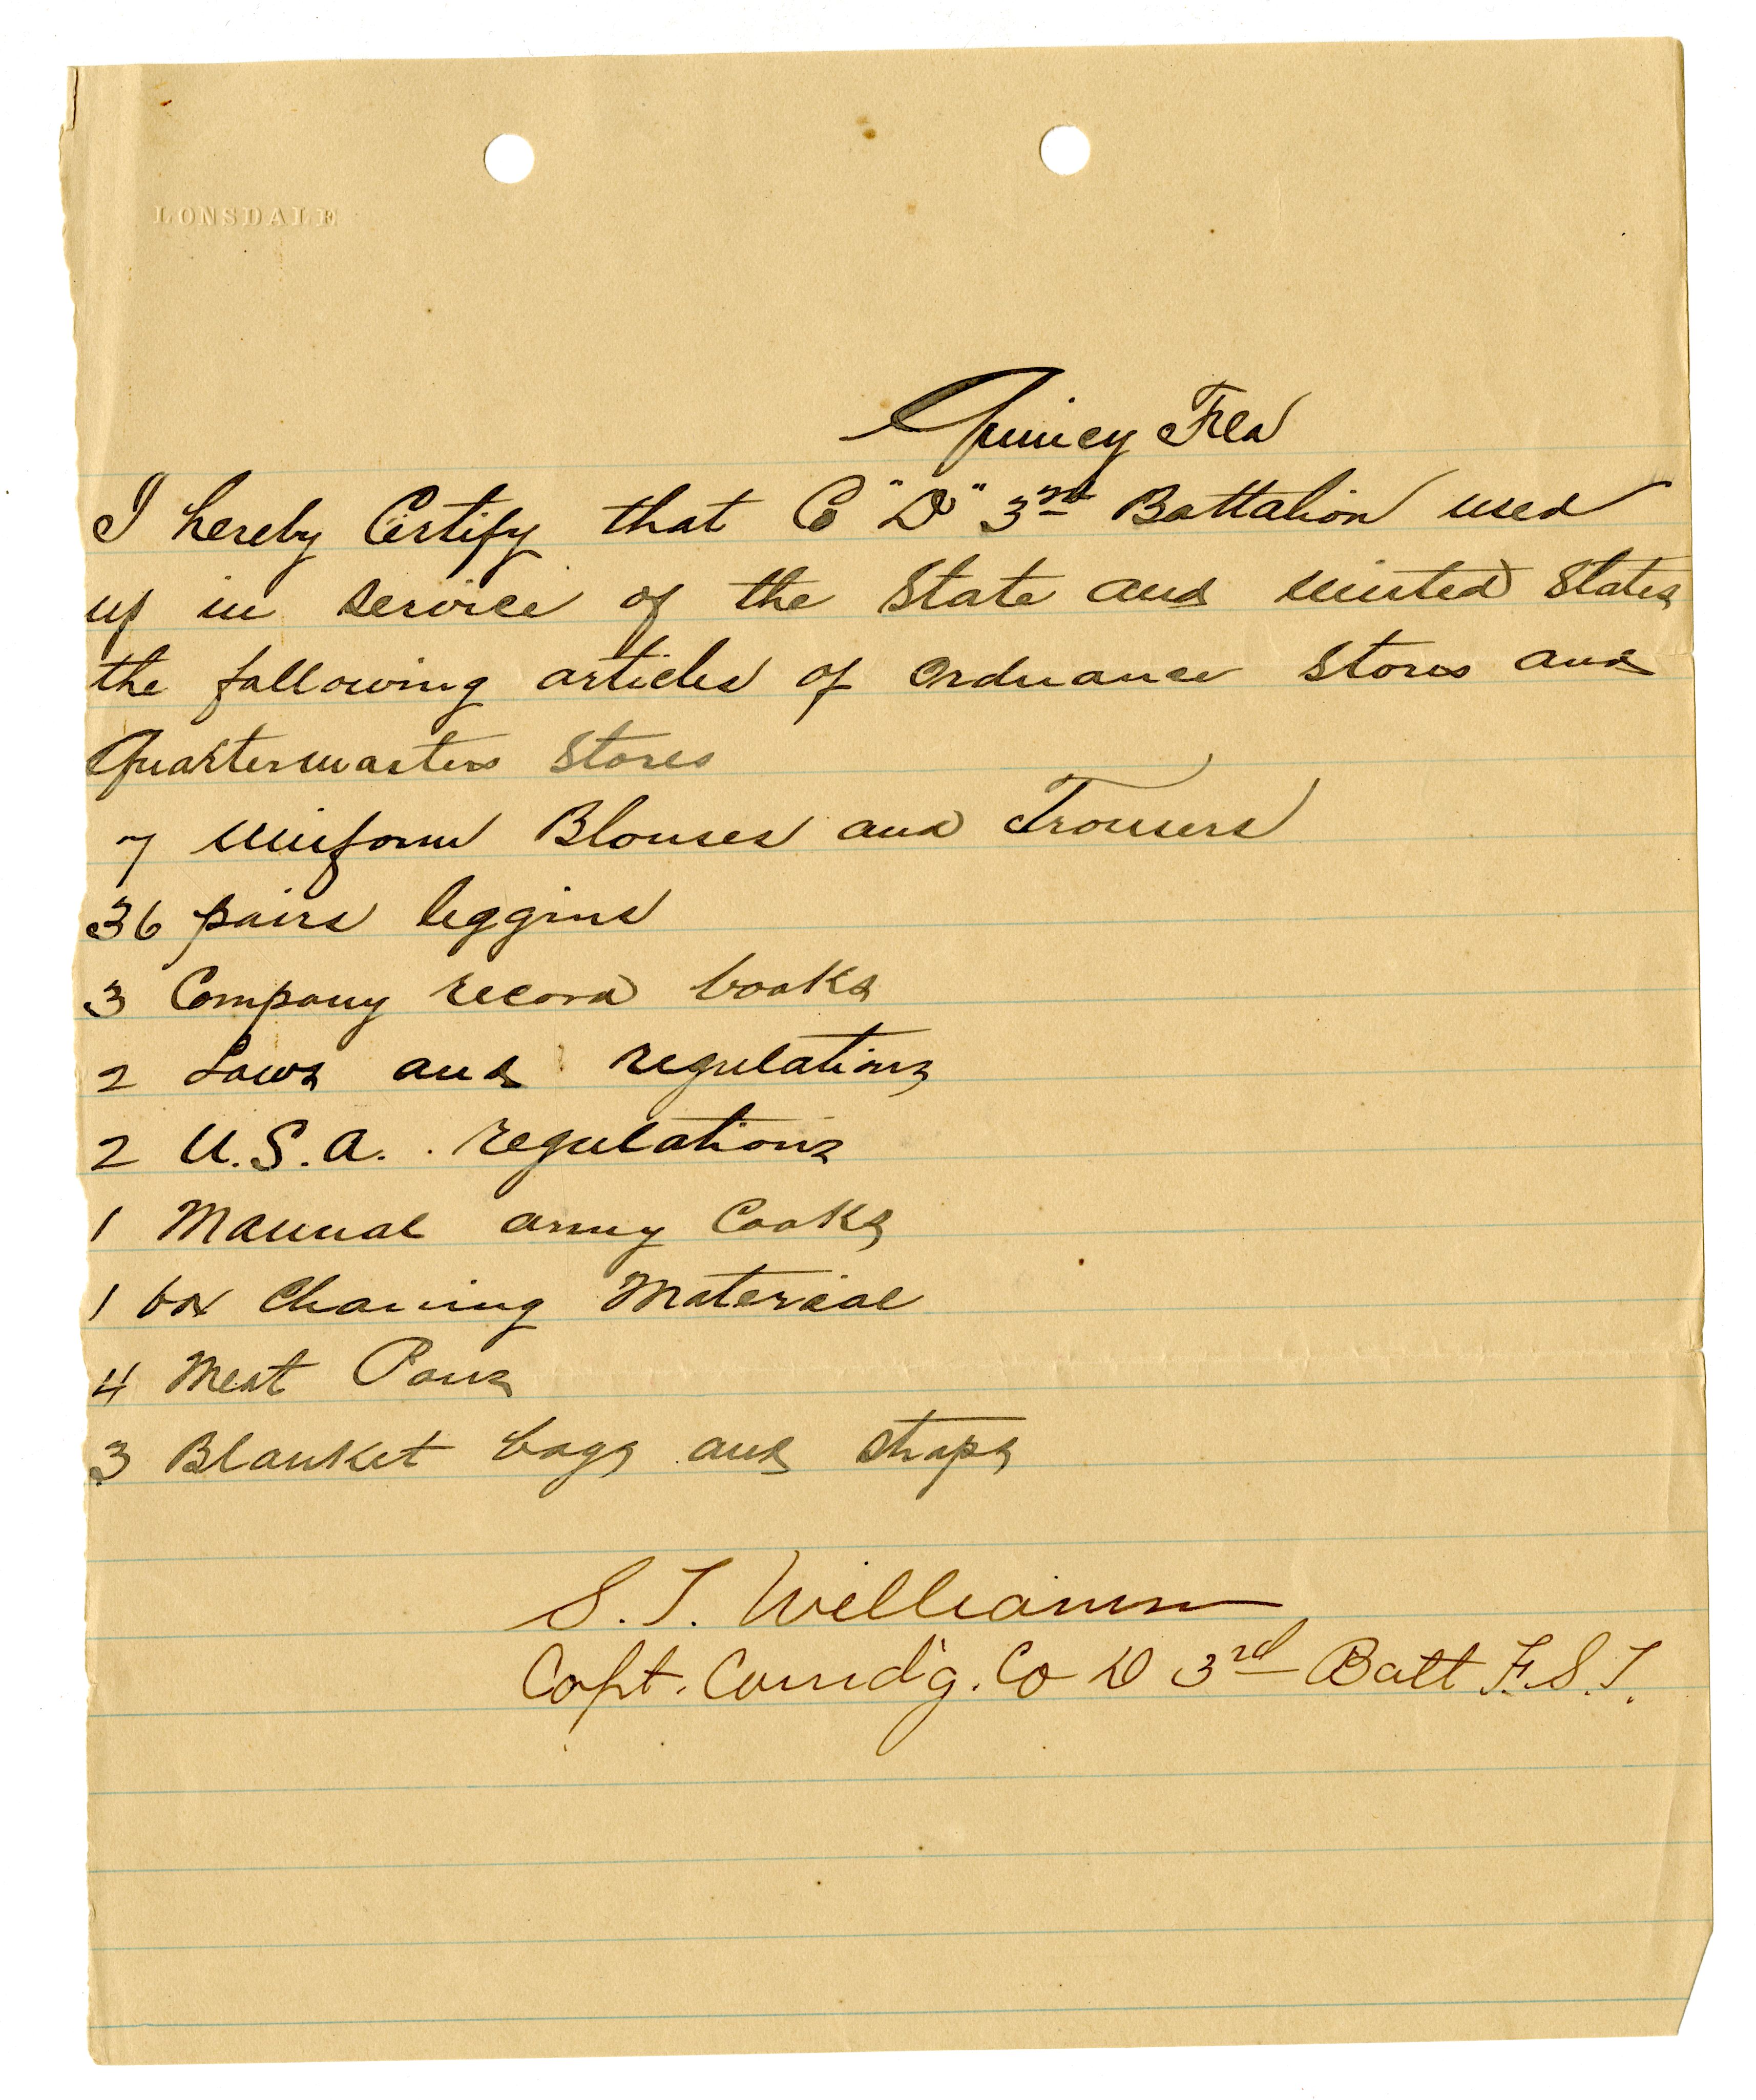 LONSDALE
Quincy Fla
I hereby Certify that Co "D" 3rd Battalion used
up in service of the State and United States
the following articles of Ordnance Stores and
Quartermasters Stores
7 Uniform Blouses and Trousers
36 pairs leggins
3 Company record books
2 Laws and regulations
2 U.S.A. regulations
1 Manual army Cooks
1 box Cleaning Material
4 Meat Pans
3 Blanket bags and straps
S. T. Williams
Capt. Comd'g. Co D 3rd Batt F.S.T.